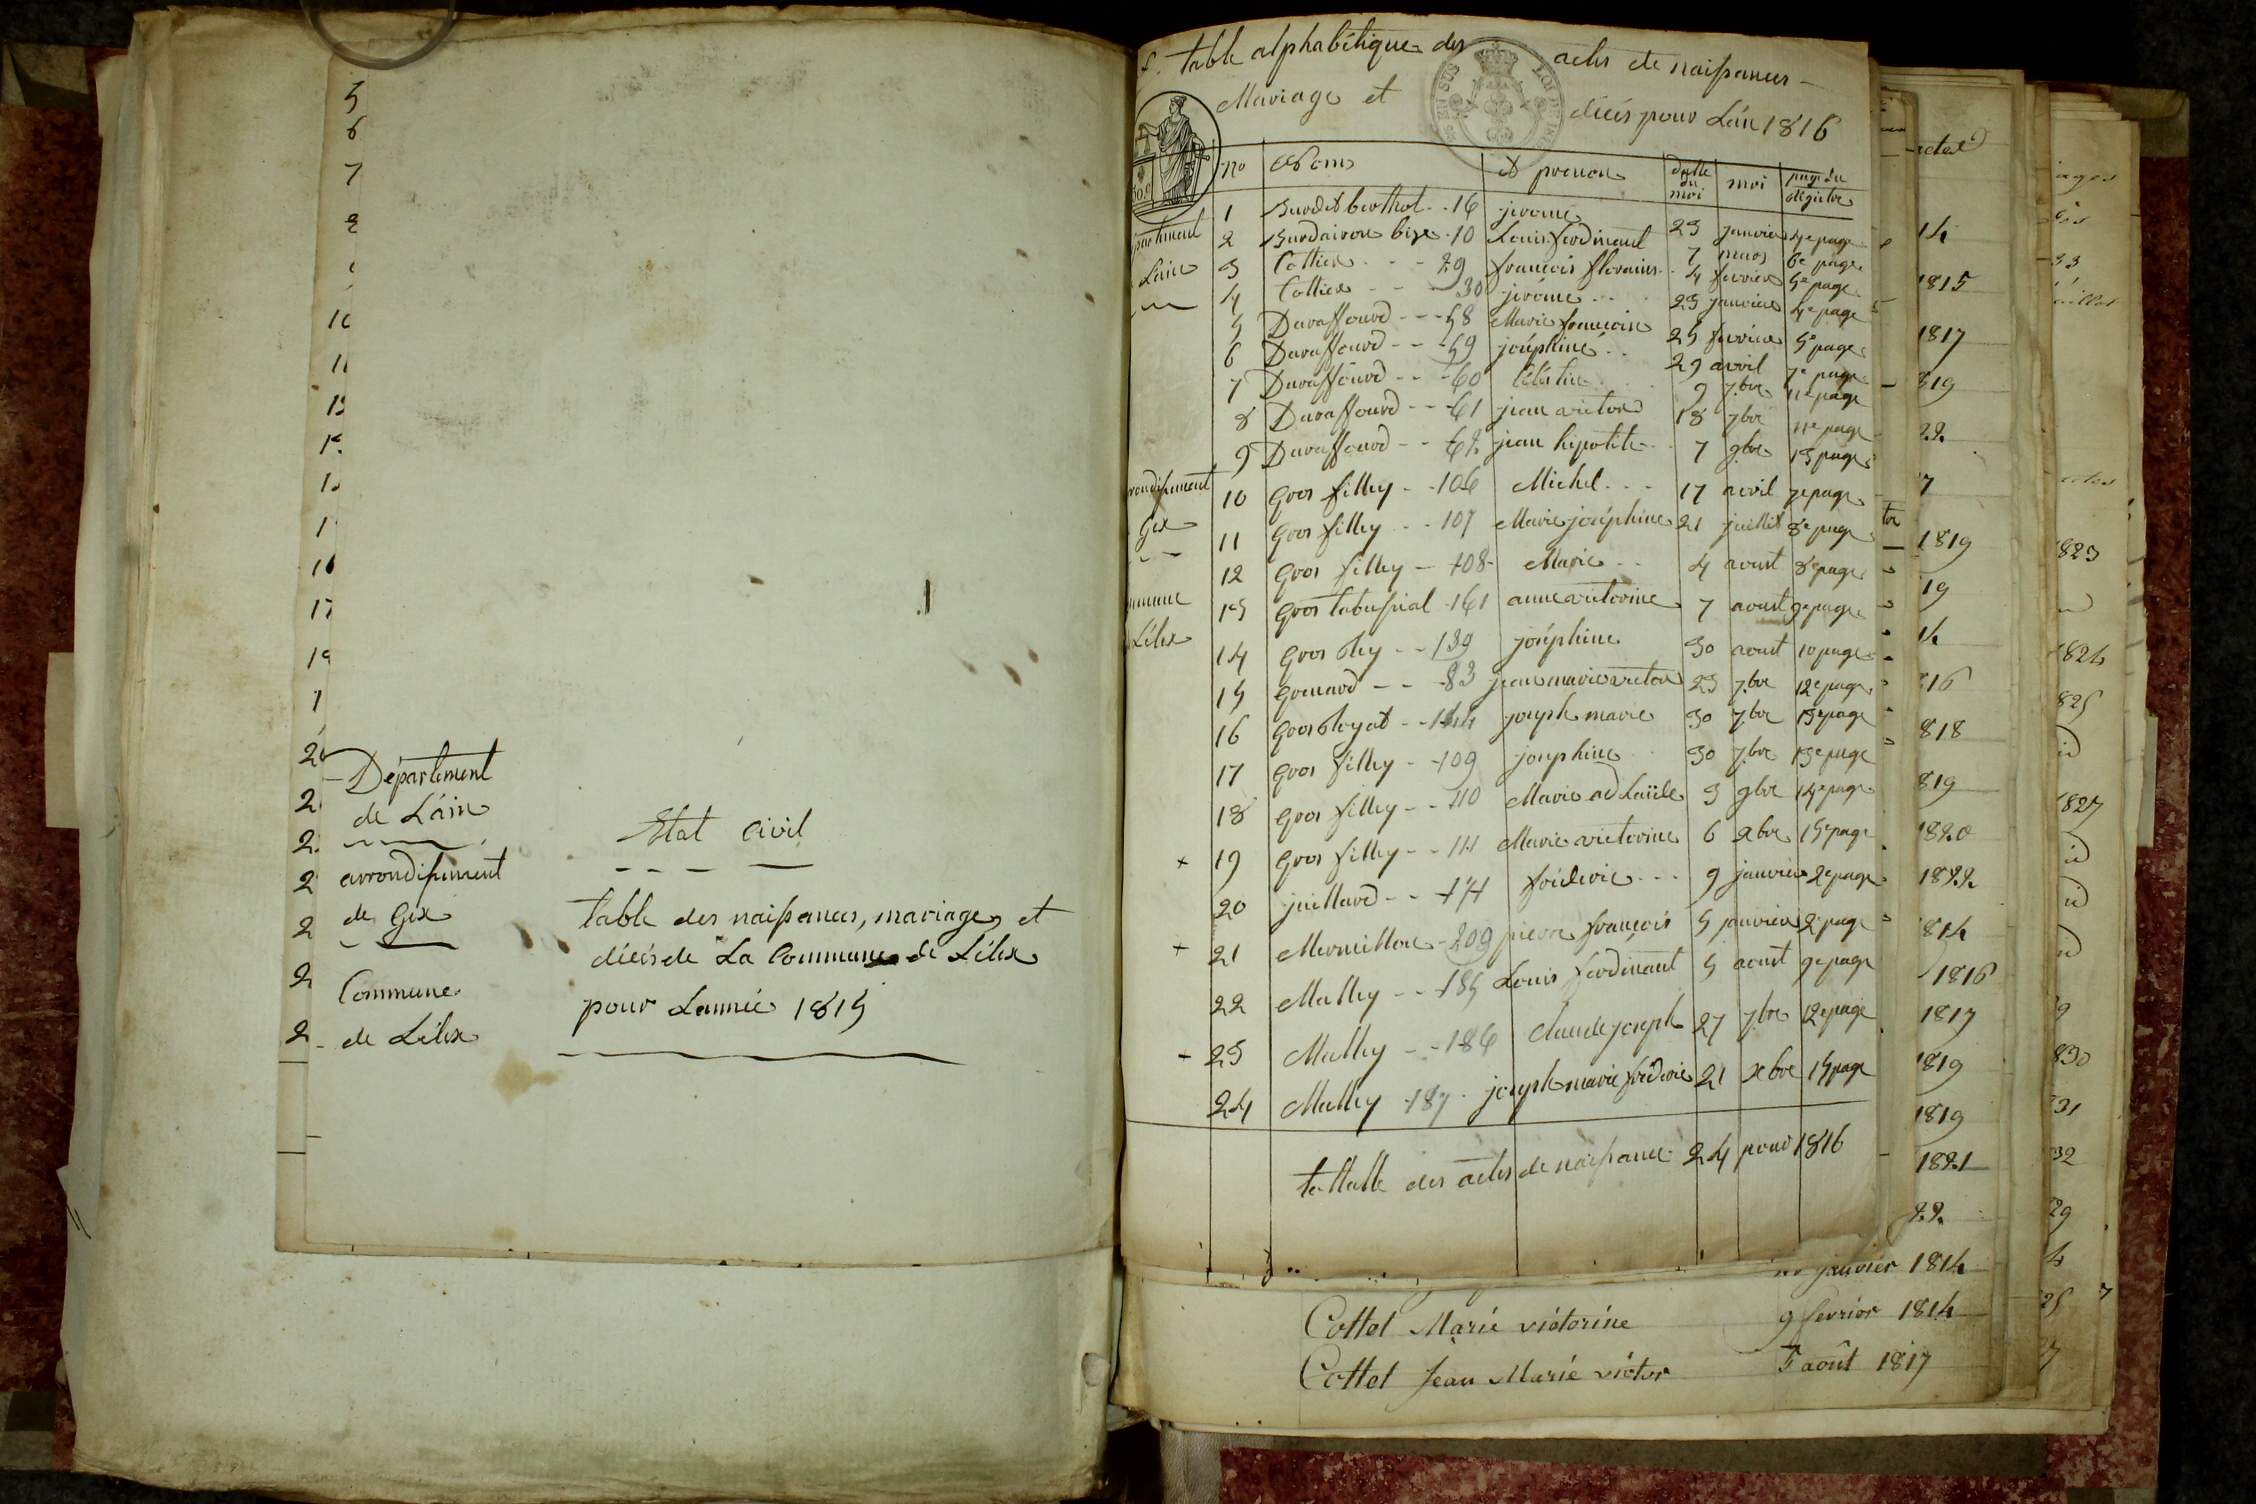 5
6
7
8
10
11
13
1
1
1
16
17
19
1
2
2
2
2
2
2
2
Département
de L'áin
arrondissement
de Gex
Commune
de Lélex
Etat Civil
table des naissances, mariages et
décès de La Commune de Lélex
pour Lannée 1815
table alphabétique des actes de naissances
Mariage et décés pour L'án 1816
50 c
partement
Láin
rondissement
Gex
mmune
Lélex
no Noms et prenoms datte du moi moi page du régistre
1 Burdet berthol 16 jerome 23 janvier 4e page
2 Burdairon bize 10 Louis ferdinant 7 mars 6e page
3 Cottier 29 françois 4 fevrier 5e page
4 Cottier 30 jeróme 23 janvier 4e page
5 Duraffourd 58 Marie françoise 25 fevrier 5e page
6 Duraffourd 59 joséphine 29 avril 7e page
7 Duraffourd 60 Céléstin 9 7bre 11e page
8 Duraffourd 61 jean victor 18 7bre 11e page
9 Duraffourd 62 jean hipolite 7 9bre 13 page
10 Gros filley 106 Michel 17 avril 7e page
11 Gros filley 107 Marie joséphine 21 juillet 8e page
12 Gros filley 108 Marie 4 aoust 8e page
13 Gros 161 anne victorine 7 aoust 9e page
14 Gros 139 joséphine 30 aoust 10 page
15 Grenard 83 jean marie victor 23 7bre 12e page
16 Gros 144 joseph marie 30 7bre 13e page
17 Gros filley 109 josephine 30 7bre 13e page
18 Gros filley 110 Marie adelaïde 3 9bre 14e page
+ 19 Gros filley 111 Marie victorine 6 xbre 15e page
20 juillard 171 fréderic 9 janvier 2e page
+ 21 Mermillon 209 pierre françois 5 janvier 2e page
22 Malley 185 Louis ferdinant 5 aoust 9e page
- 23 Malley 186 Claude joseph 27 7bre 12e page
24 Malley 187 joseph marie fréderic 21 xbre 15 page
des actes de naissance 24 pour 1816
janvier 1814
Cottet Marie victorine 9 fevrier 1814
Cottet Jean Marie victor 5 août 1817
actes
14
1815
1817
819
22
7
1819
19
14
816
818
819
1820
1822
1814
1816
1817
1819
1819
1821
22
ages
33
uillet
actes
823
1824
825
827
9
830
31
32
29
4
25
7